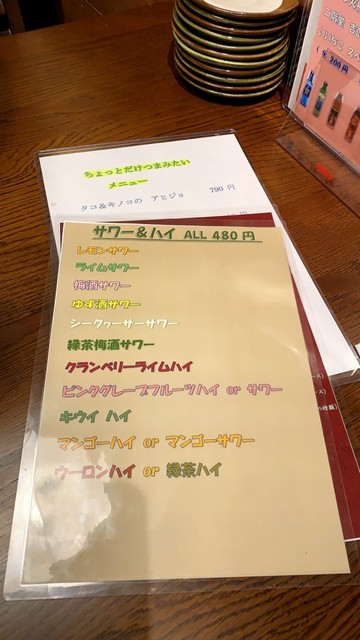 ちょっとだけつまみたい
メニュー
タコ&キノコの アヒジョ 790 円
サワー&ハイ ALL 480 円
レモンサワー
ライムサワー
梅酒サワー
ゆず酒サワー
シークヮーサーサワー
緑茶梅酒サワー
クランベリーライムハイ
ピンクグレープフルーツハイ or サワー
キウイ ハイ
マンゴーハイ or マンゴーサワー
ウーロンハイ or 緑茶ハイ